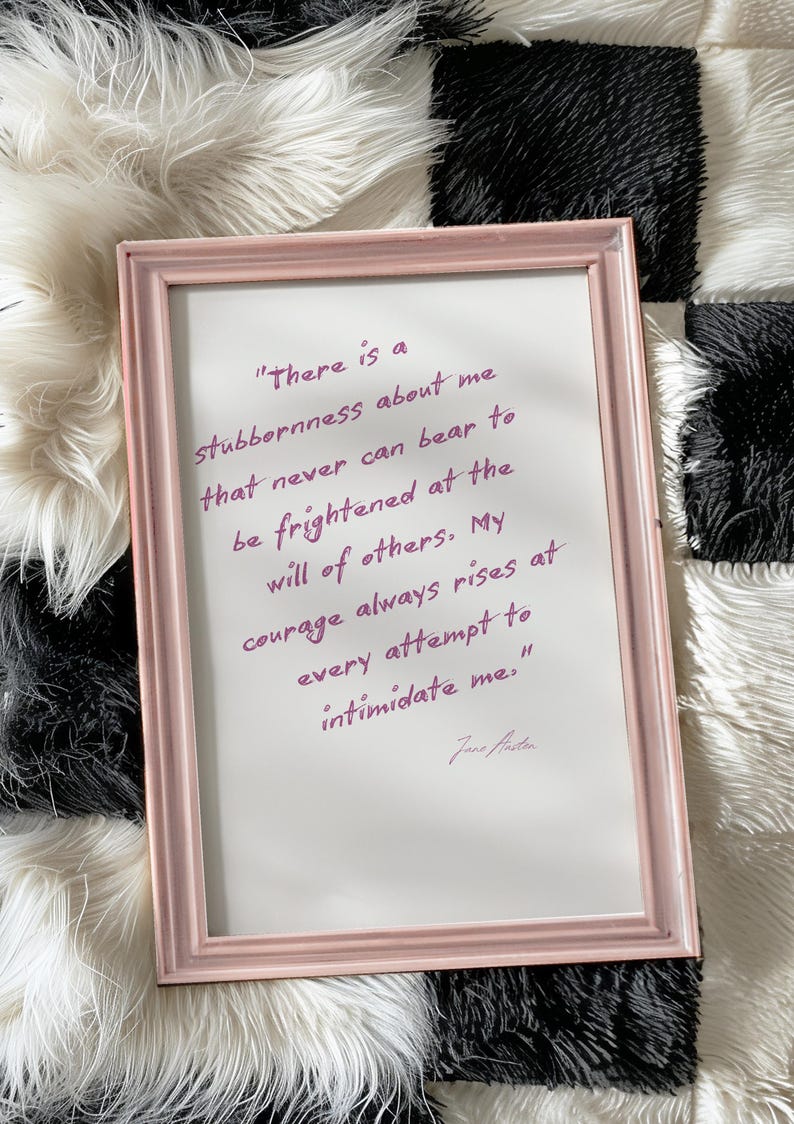 "There is a
stubbornness about me
that never can bear to
be frightened at the
will of others. My
courage always rises at
every attempt to
intimidate me."
Jane Austen